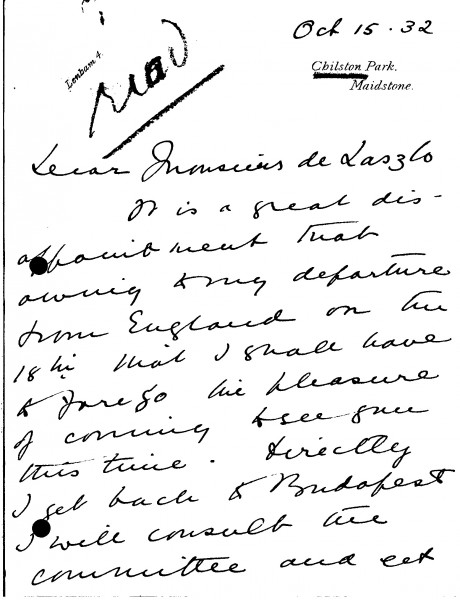 Oct 15 · 32
Lenham 4.
read
Chilston Park,
Maidstone.
Dear Monsieur de Laszlo
It is a great dis-
appointment that
owing to my departure
from England on the
18th that I shall have
to forego the pleasure
of coming to see you
this time. Directly
I get back to Budapest
I will consult the
committee and let